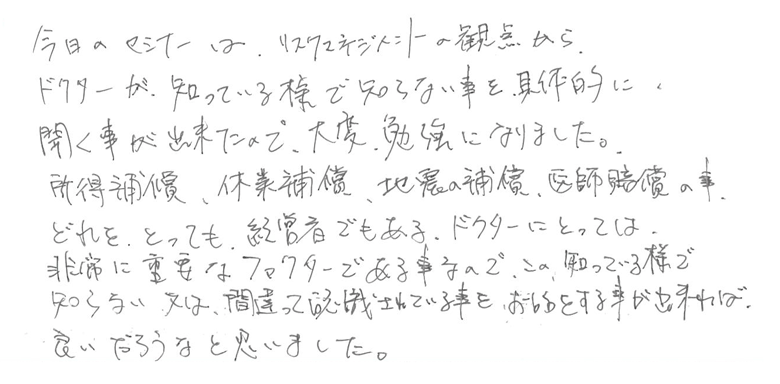 今日のセミナーは、リスクマネジメントの観点から、
ドクターが、知っている様で知らない事を具体的に、
聞く事が出来たので、大変、勉強になりました。
所得補償、休業補償、地震の補償、医師賠償の事、
どれを、とっても、経営者でもある、ドクターにとっては、
非常に重要なファクターである事なので、この、知っている様で
知らない又は、間違って認識されている事を、お話をする事が出来れば、
良いだろうなと思いました。